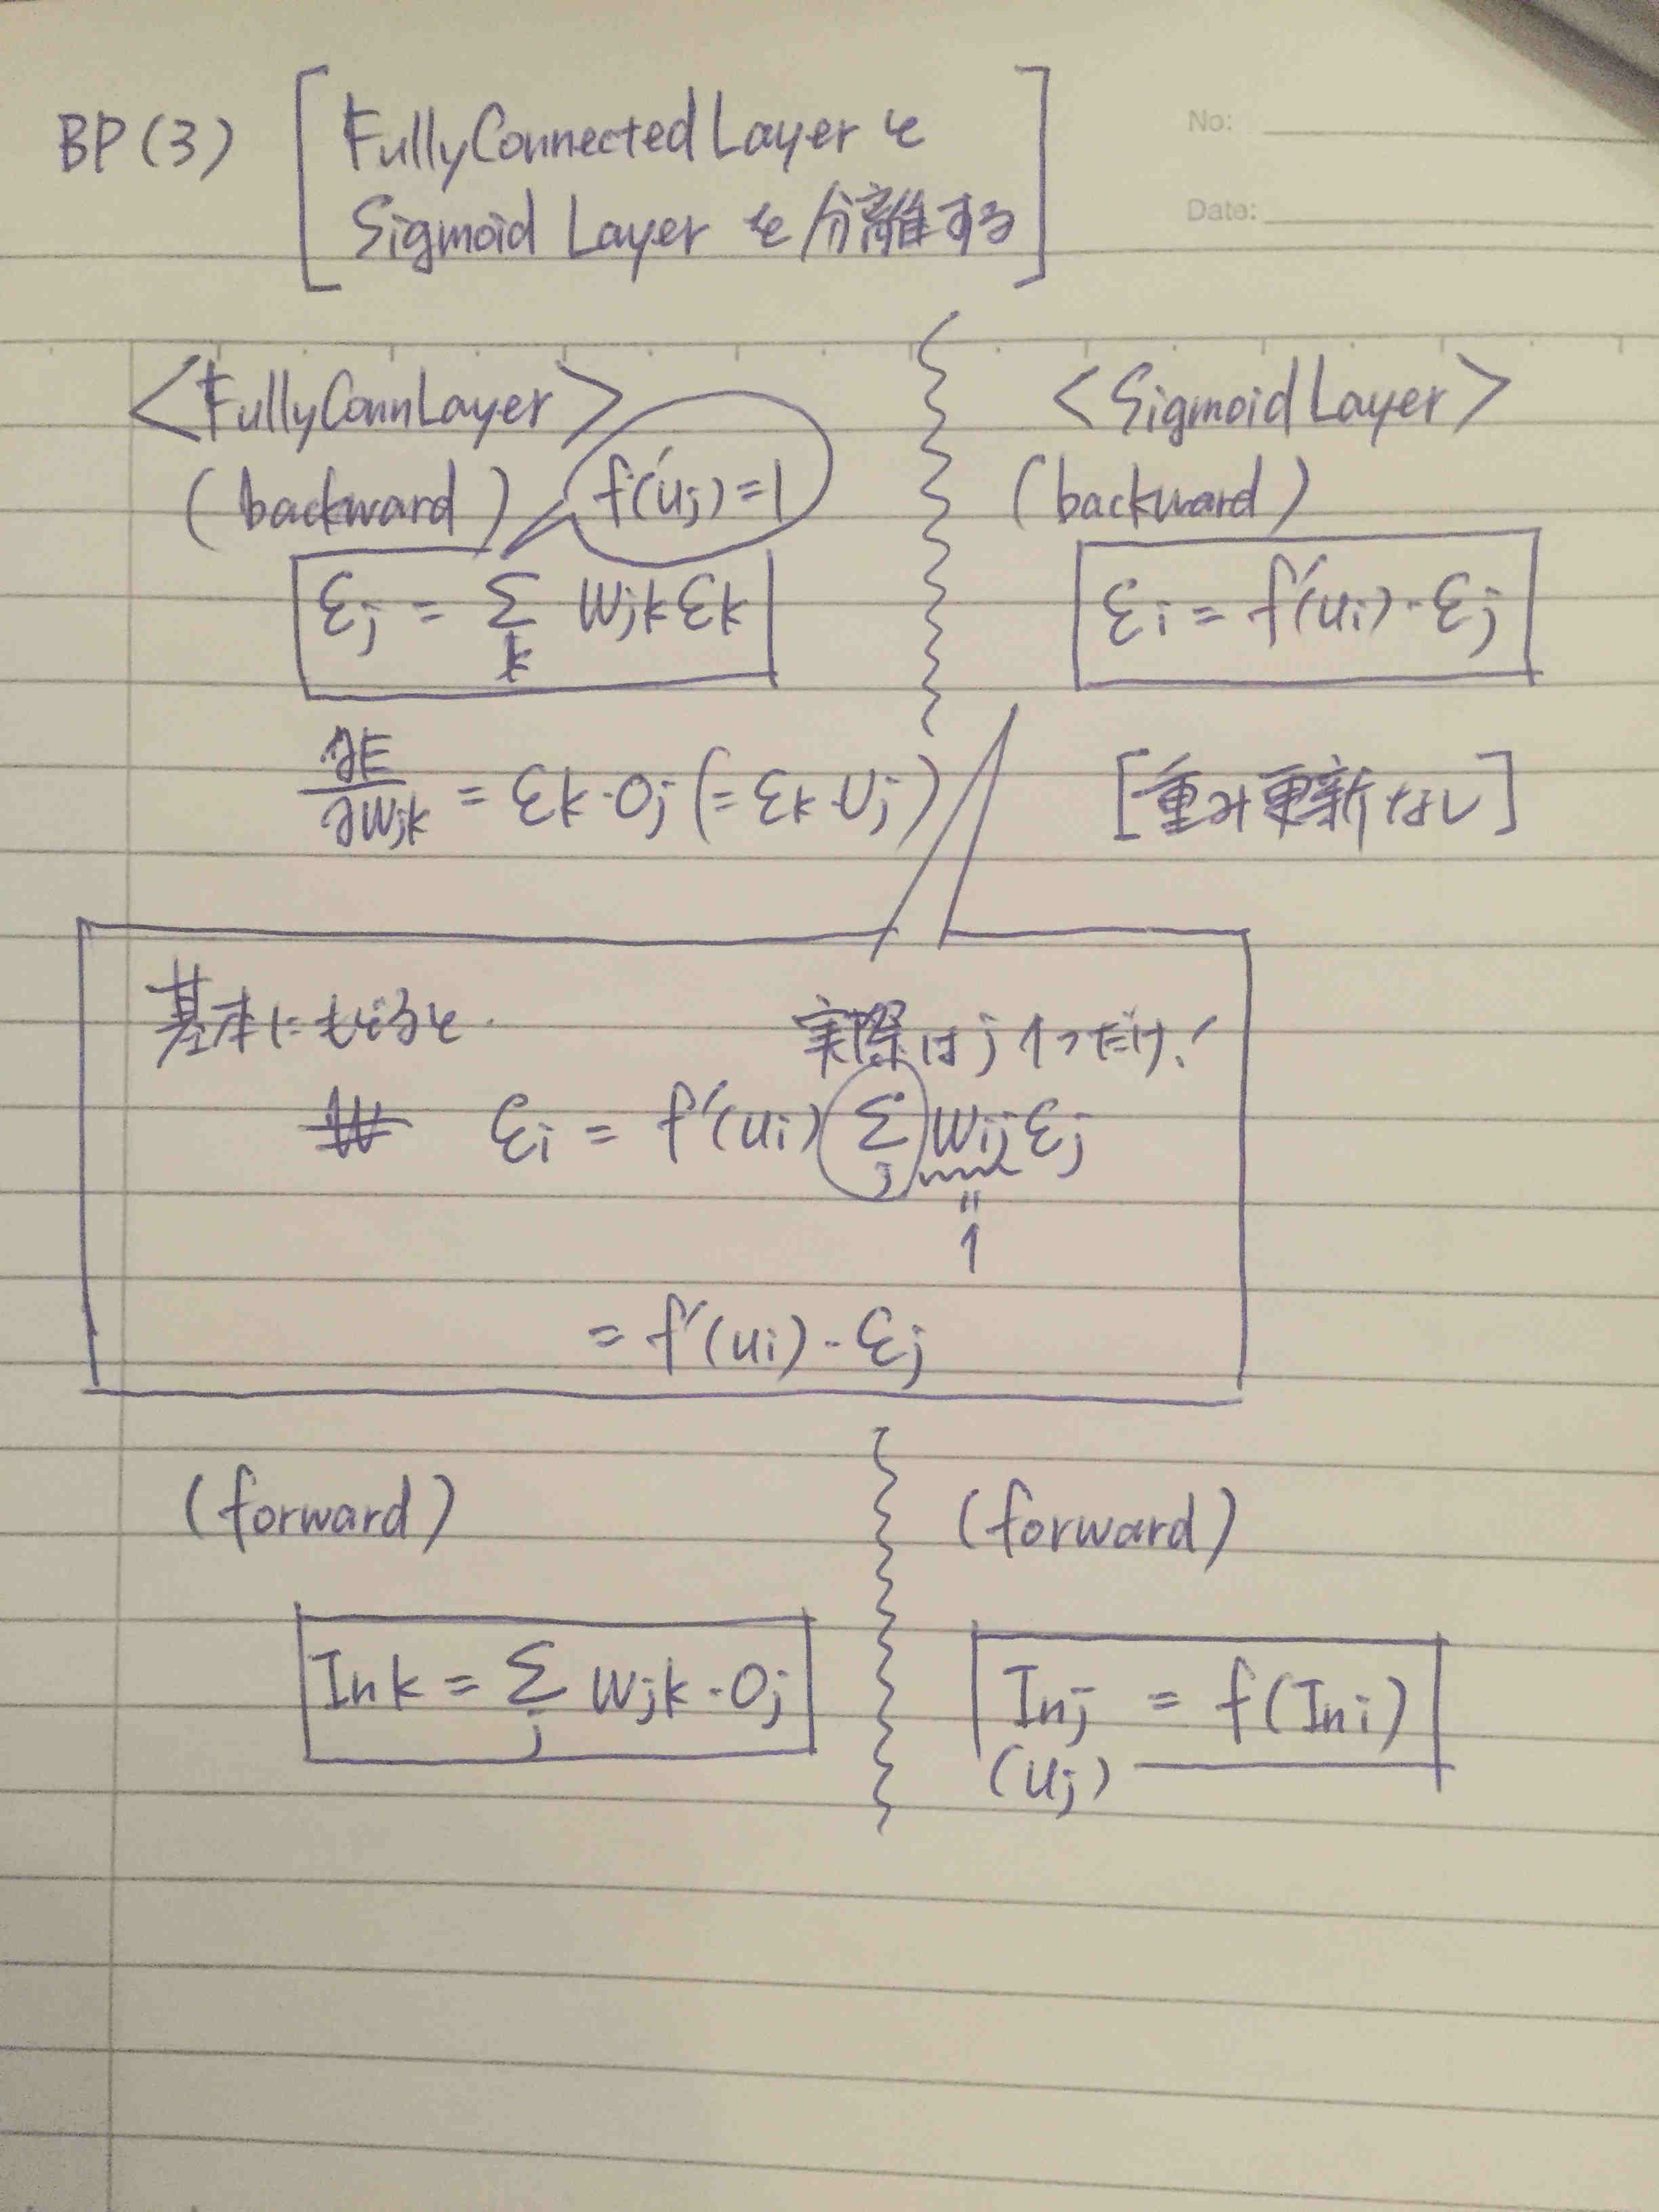 BP(3) [FullyConnectedLayerと
Sigmoid Layer を分離する]
No:
Date:
<FullyConnLayer>
(backward)
f'(uj)=1
εj = Σk wjk εk
∂E/∂wjk = εk・oj (= εk・uj)
<Sigmoid Layer>
(backward)
εi = f'(ui)・εj
[重み更新なし]
基本にもどると
実際はj 1つだけ!
εi = f'(ui) Σj wij εj
=
1
= f'(ui)・εj
(forward)
Ink = Σj wjk・oj
(forward)
Inj = f(Ini)
(uj)